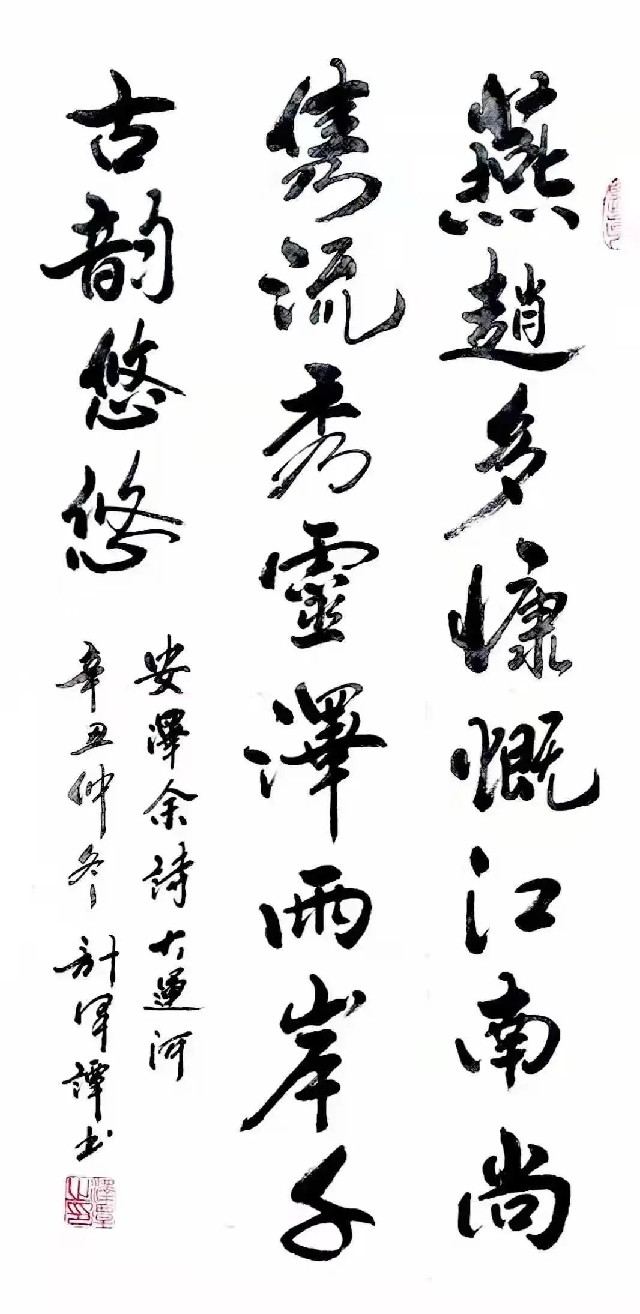 燕趙多慷慨江南尚
隽流秀靈澤兩岸千
古韻悠悠
安澤余詩大運河
辛丑仲冬 計譚书